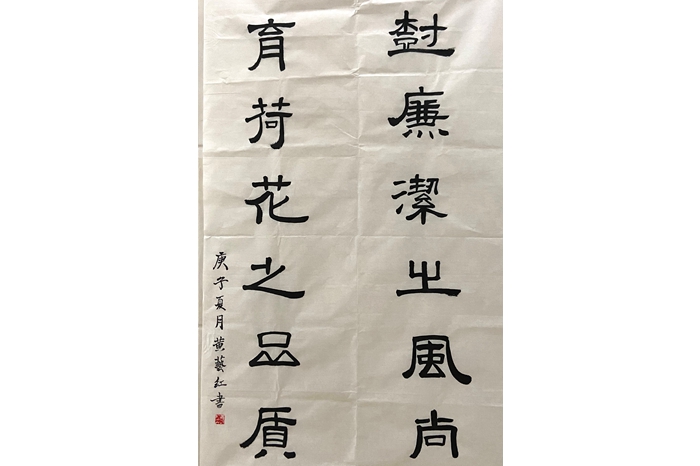 樹廉潔之風尚
育荷花之品質
庚子夏月黄藝红書